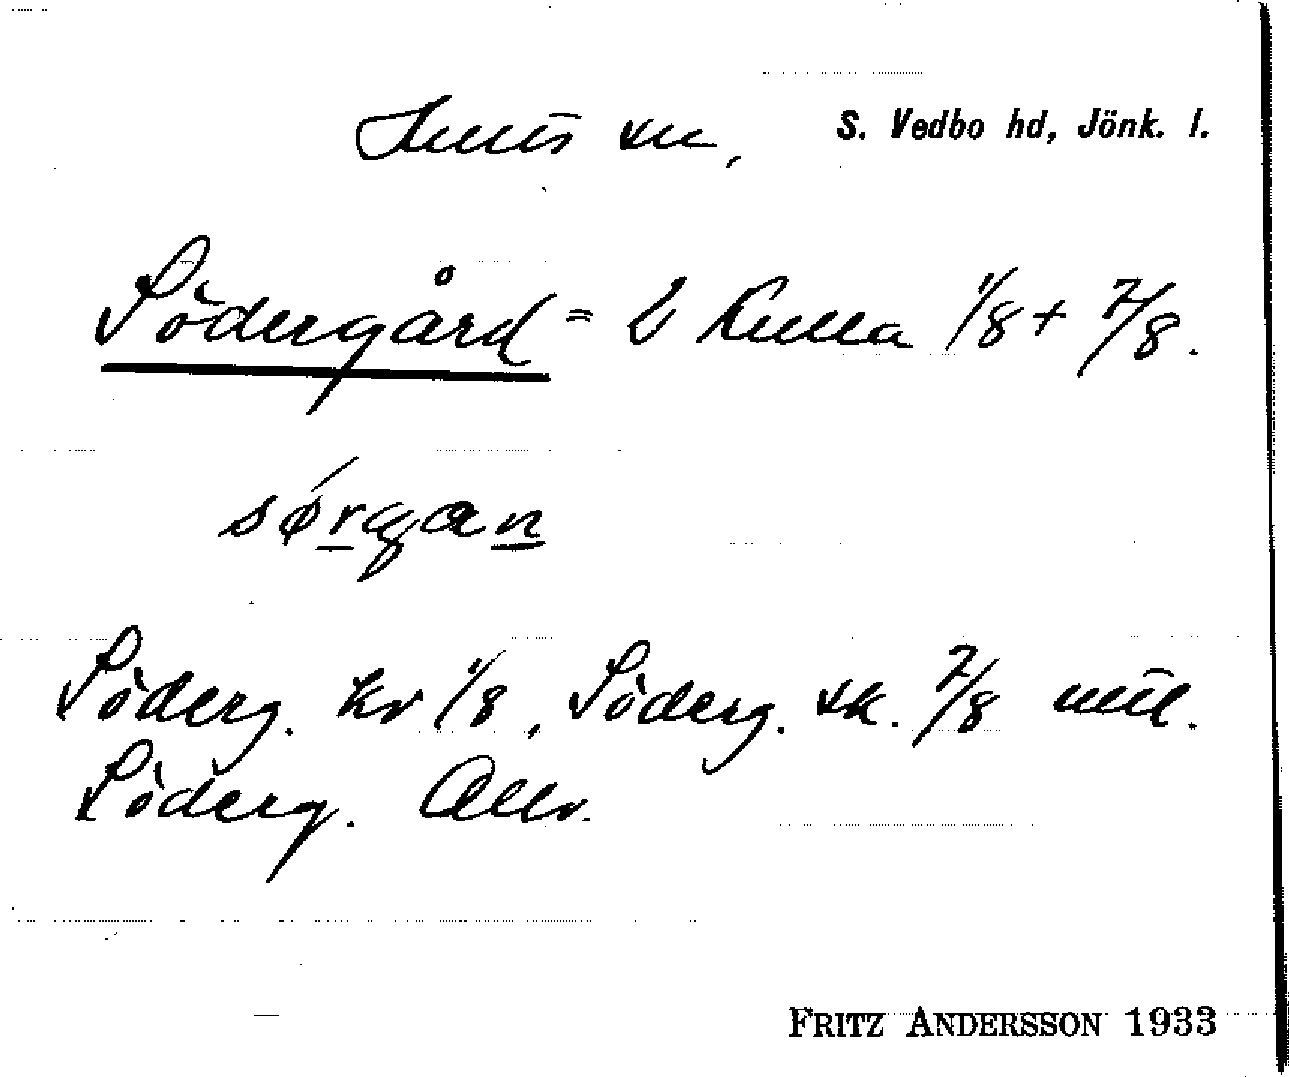 sn, S. Vedbo hd, Jönk. l.
Södergård = Kulla 1/8 + 7/8.
sørgan
Söderg. kr 1/8, Söderg. sk. 7/8 mtl.
Söderg. Allm.
FRITZ ANDERSSON 1933